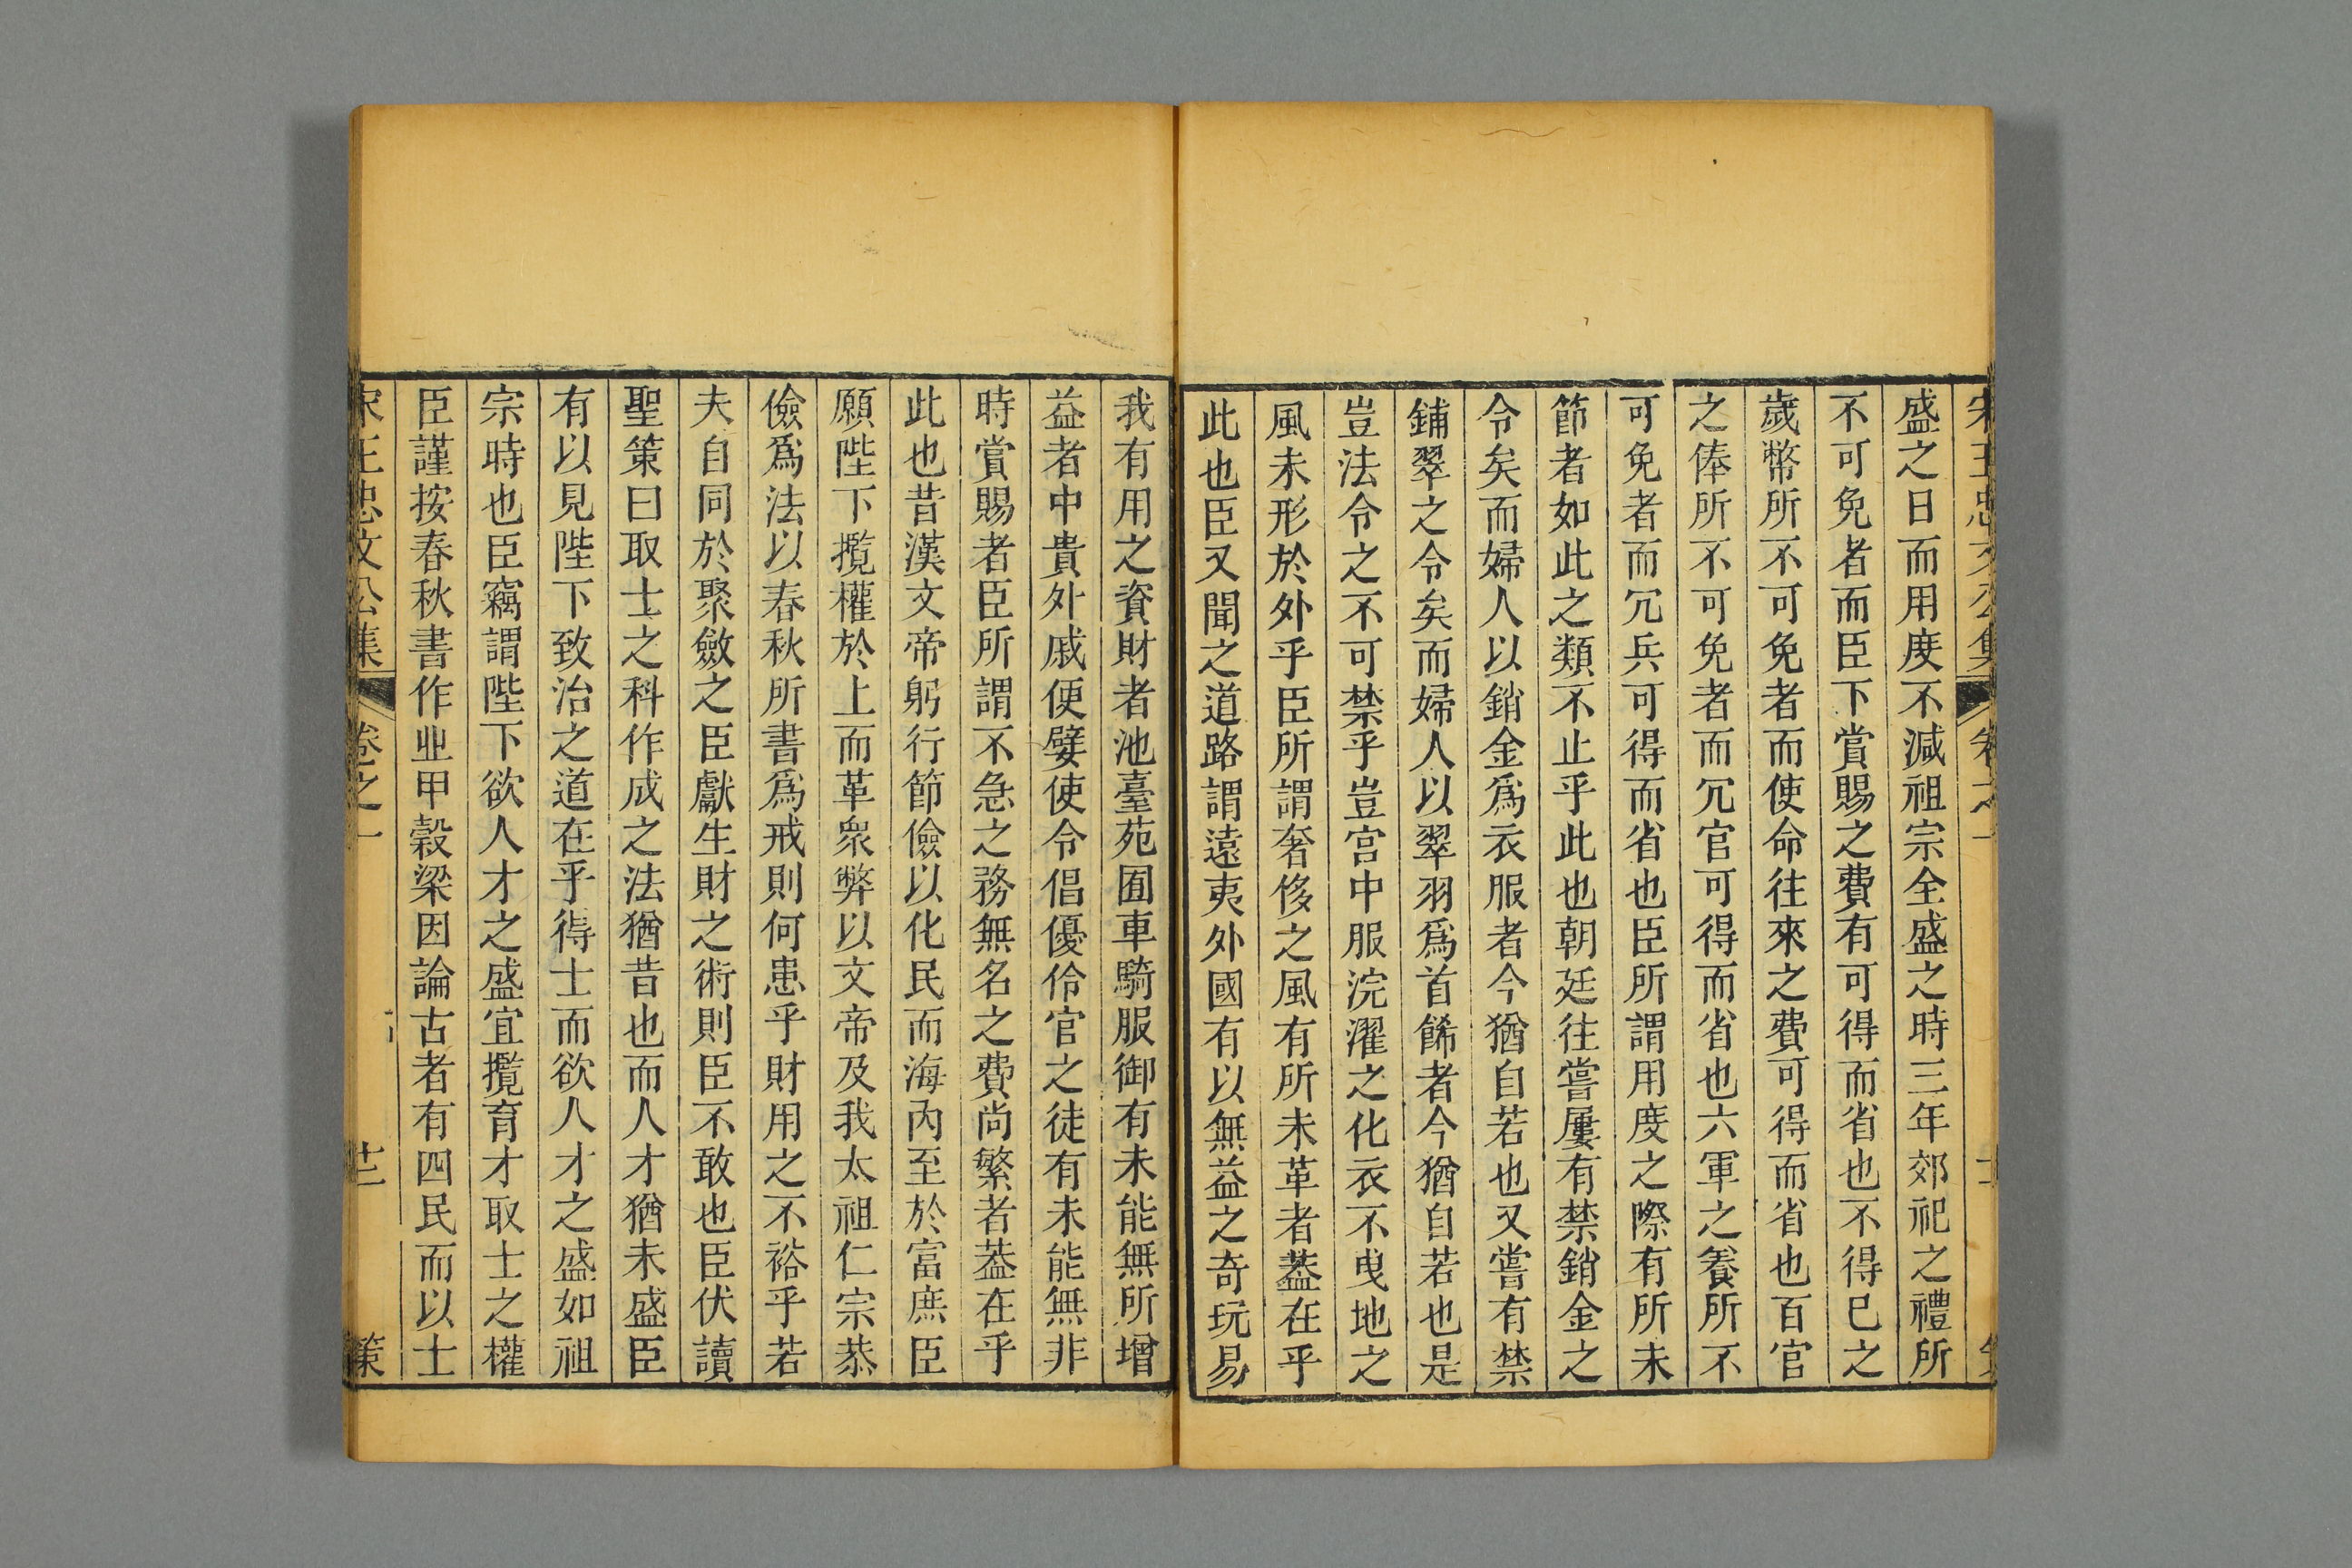 宋王忠文公集 卷之一 策
盛之日而用度不減祖宗全盛之時三年郊祀之禮所
不可免者而臣下賞賜之費有可得而省也不得已之
歲幣所不可免者而使命往來之費可得而省也百官
之俸所不可免者而冗官可得而省也六軍之養所不
可免者而冗兵可得而省也臣所謂用度之際有所未
節者如此之類不止乎此也朝廷往嘗屢有禁銷金之
令矣而婦人以銷金爲衣服者今猶自若也又嘗有禁
鋪翠之令矣而婦人以翠羽爲首餙者今猶自若也是
豈法令之不可禁乎豈宮中服浣濯之化衣不曳地之
風未形於外乎臣所謂奢侈之風有所未革者葢在乎
此也臣又聞之道路謂遠夷外國有以無益之奇玩易
我有用之資財者池臺苑囿車騎服御有未能無所增
益者中貴外戚便嬖使令倡優伶官之徒有未能無非
時賞賜者臣所謂不急之務無名之費尚繁者葢在乎
此也昔漢文帝躬行節儉以化民而海內至於富庶臣
願陛下攬權於上而革衆弊以文帝及我太祖仁宗恭
儉爲法以春秋所書爲戒則何患乎財用之不裕乎若
夫自同於聚斂之臣獻生財之術則臣不敢也臣伏讀
聖策曰取士之科作成之法猶昔也而人才猶未盛臣
有以見陛下致治之道在乎得士而欲人才之盛如祖
宗時也臣竊謂陛下欲人才之盛宜攬育才取士之權
臣謹按春秋書作丠甲榖梁因論古者有四民而以士
宋王忠文公集 卷之一 廿 策